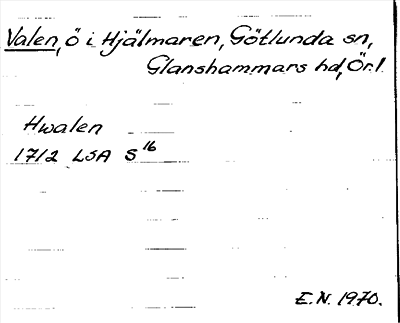 Valen, ö i Hjälmaren, Götlunda sn,
Glanshammars hd, Ör. l
Hwalen
1712 LSA S 16
E.N. 1970.